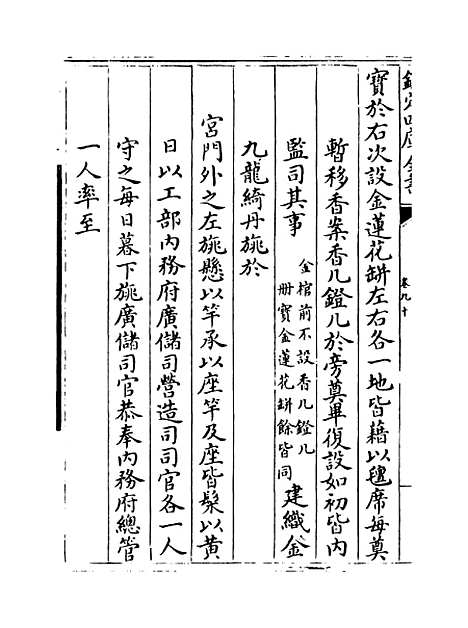 欽定四庫全書
卷九十
寶於右次設金蓮花缾左右各一地皆藉以氊席每奠
暫移香案香几鐙几於旁奠畢復設如初皆内
監司其事金棺前不設香几鐙几冊寶金蓮花缾餘皆同建織金
九龍綺丹旐於
宮門外之左旐懸以竿承以座竿及座皆髹以黄
日以工部内務府廣儲司營造司司官各一人
守之每日暮下旐廣儲司官恭奉内務府總管
一人率至